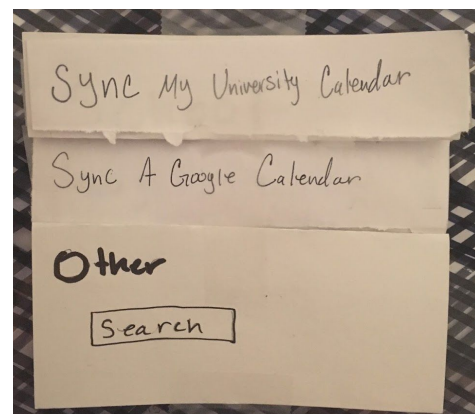 Sync My University Calendar
Sync A Google Calendar
Other
Search